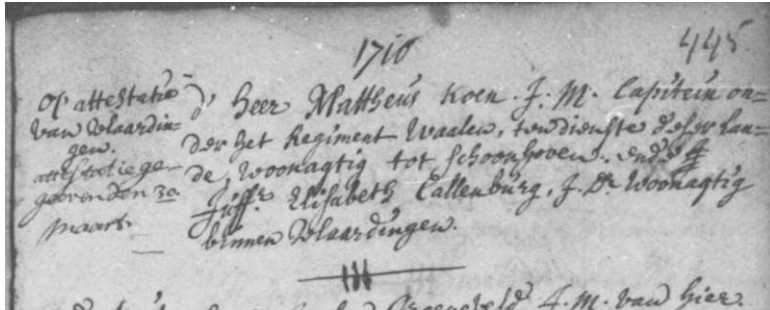 1710
445.
Op attestatie
van Vlaardin=
gen.
attestatie ge-
geeven den 30.
maart.
d' Heer Mattheus Koen. J. M. Capitein on=
der het Regiment Waalen, ten dienste deser Lan=
de, Woonagtig tot Schoonhoven. ende
Juffr. Elisabeth Callenburg, J. Dr. Woonagtig
binnen Vlaardingen.
Groeneveld J. M. van hier.